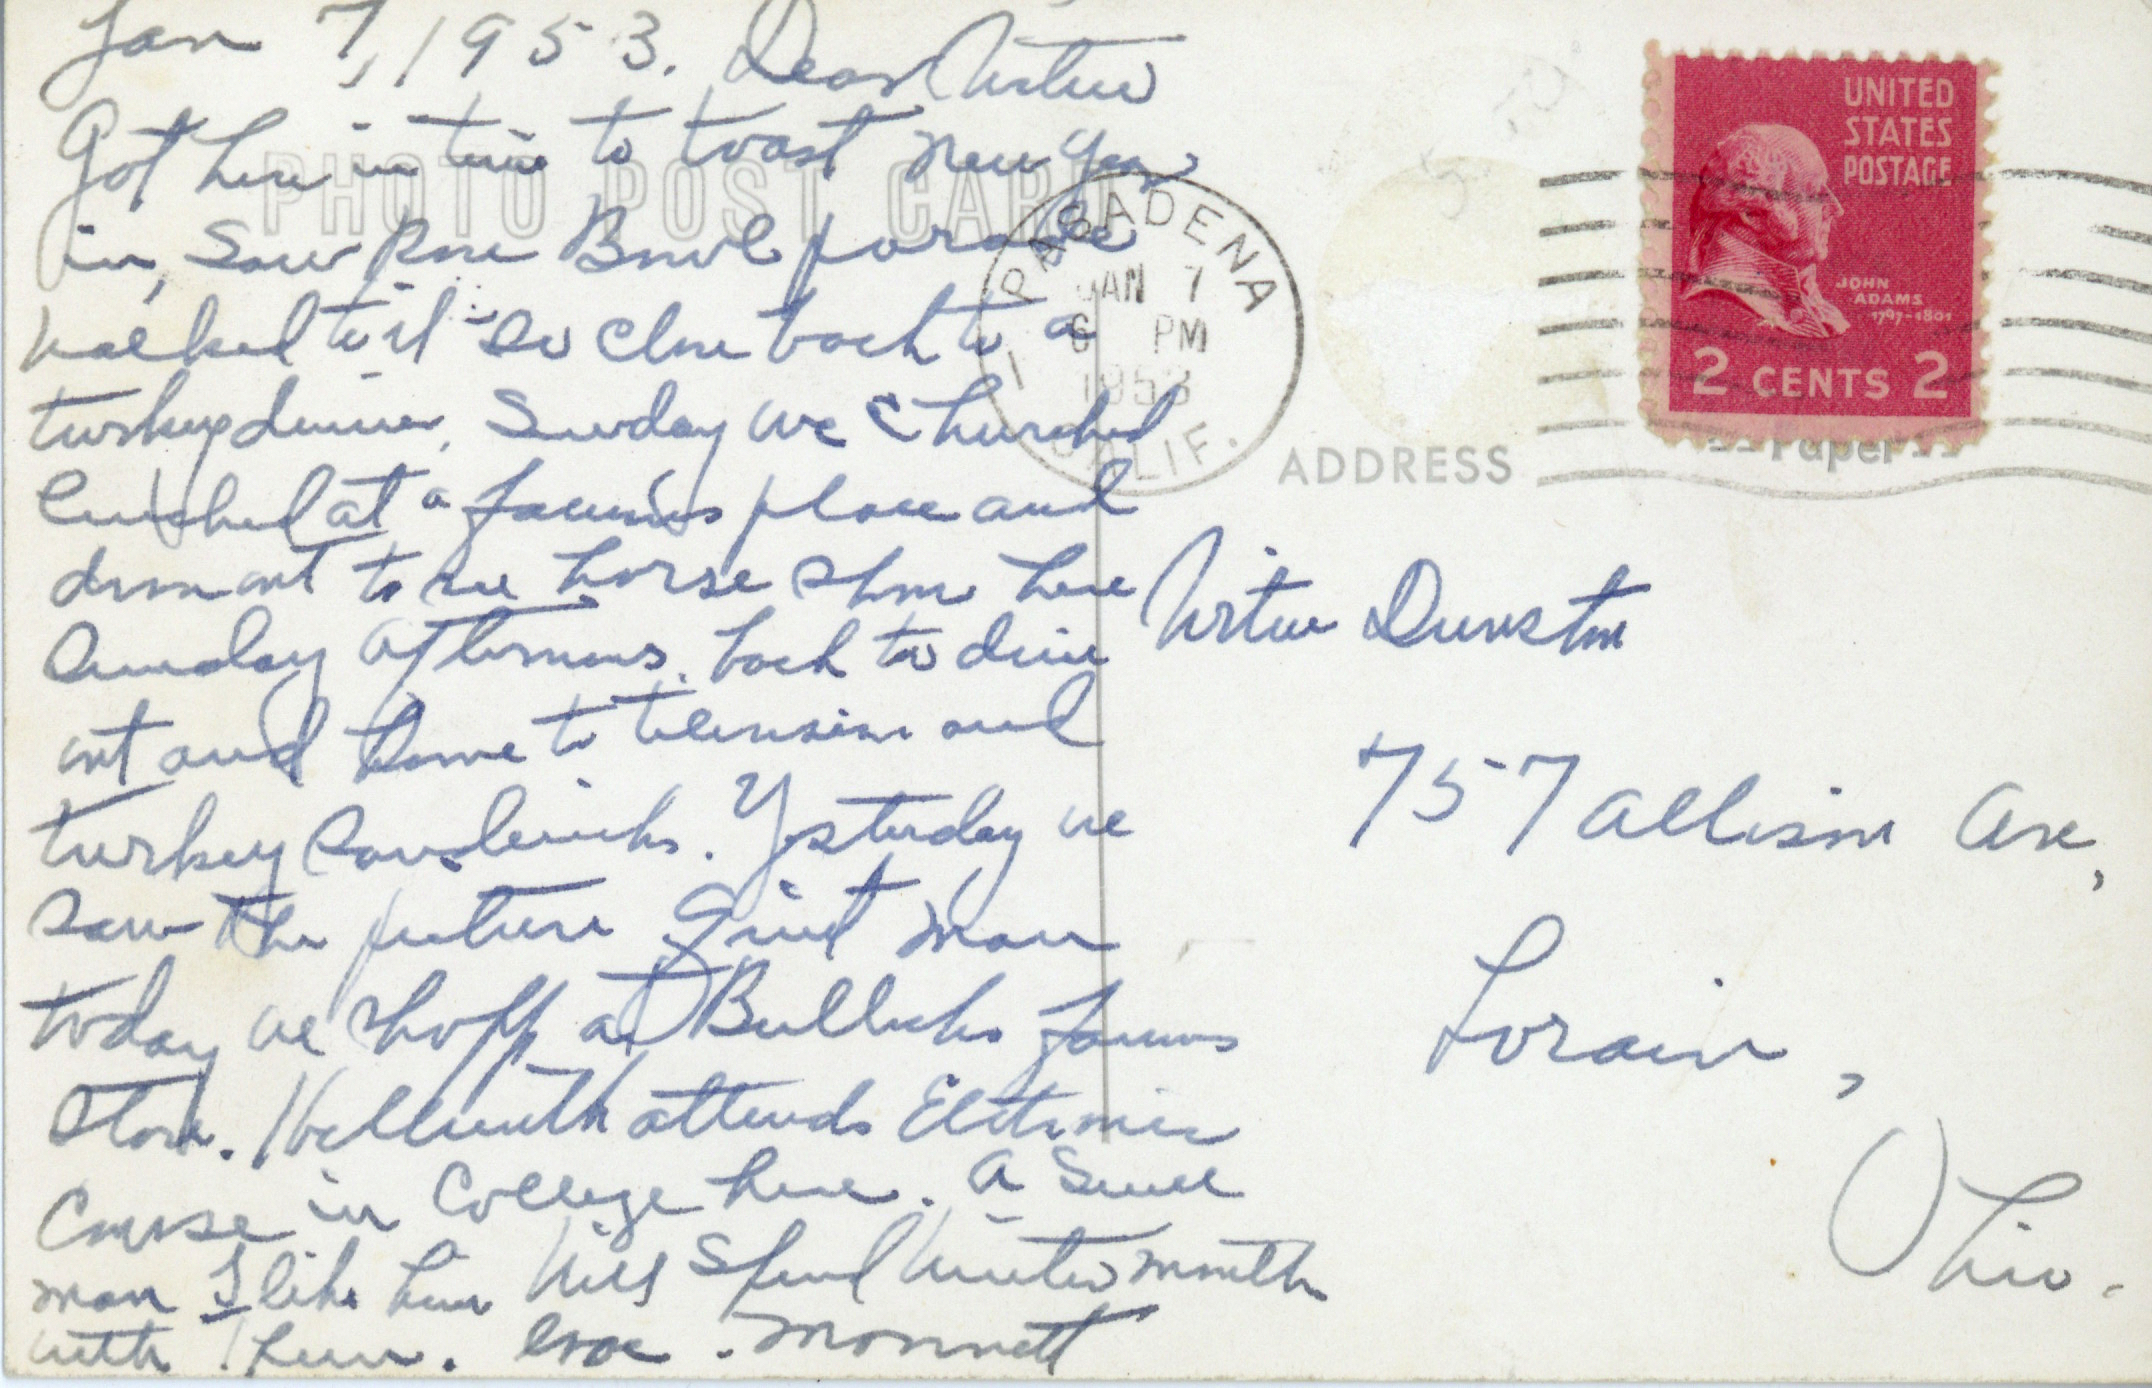 Jan 7, 1953. Dear Virtue
Got here in time to toast New Year
in, Saw Rose Bowl parade
walked to it so close back to a
turkey dinner, Sunday we churched
Lunched at a famous place and
drove out to see horse show here
Sunday afternoons. back to dine
out and home to television and
turkey sandwichs. Yesterday we
saw the picture Quiet Man
today we shopp at Bullocks famous
store. Hellmuth attends Electronic
Course in College here. A Swell
man I like him Will Spend Winter months
with them. Monnett
PHOTO POST CARD
PASADENA
JAN 7
6 PM
1953
CALIF.
ADDRESS
UNITED
STATES
POSTAGE
JOHN
ADAMS
1797-1801
2 CENTS 2
Paper
Virtue Dunston
757 Allison Ave,
Lorain,
Ohio.